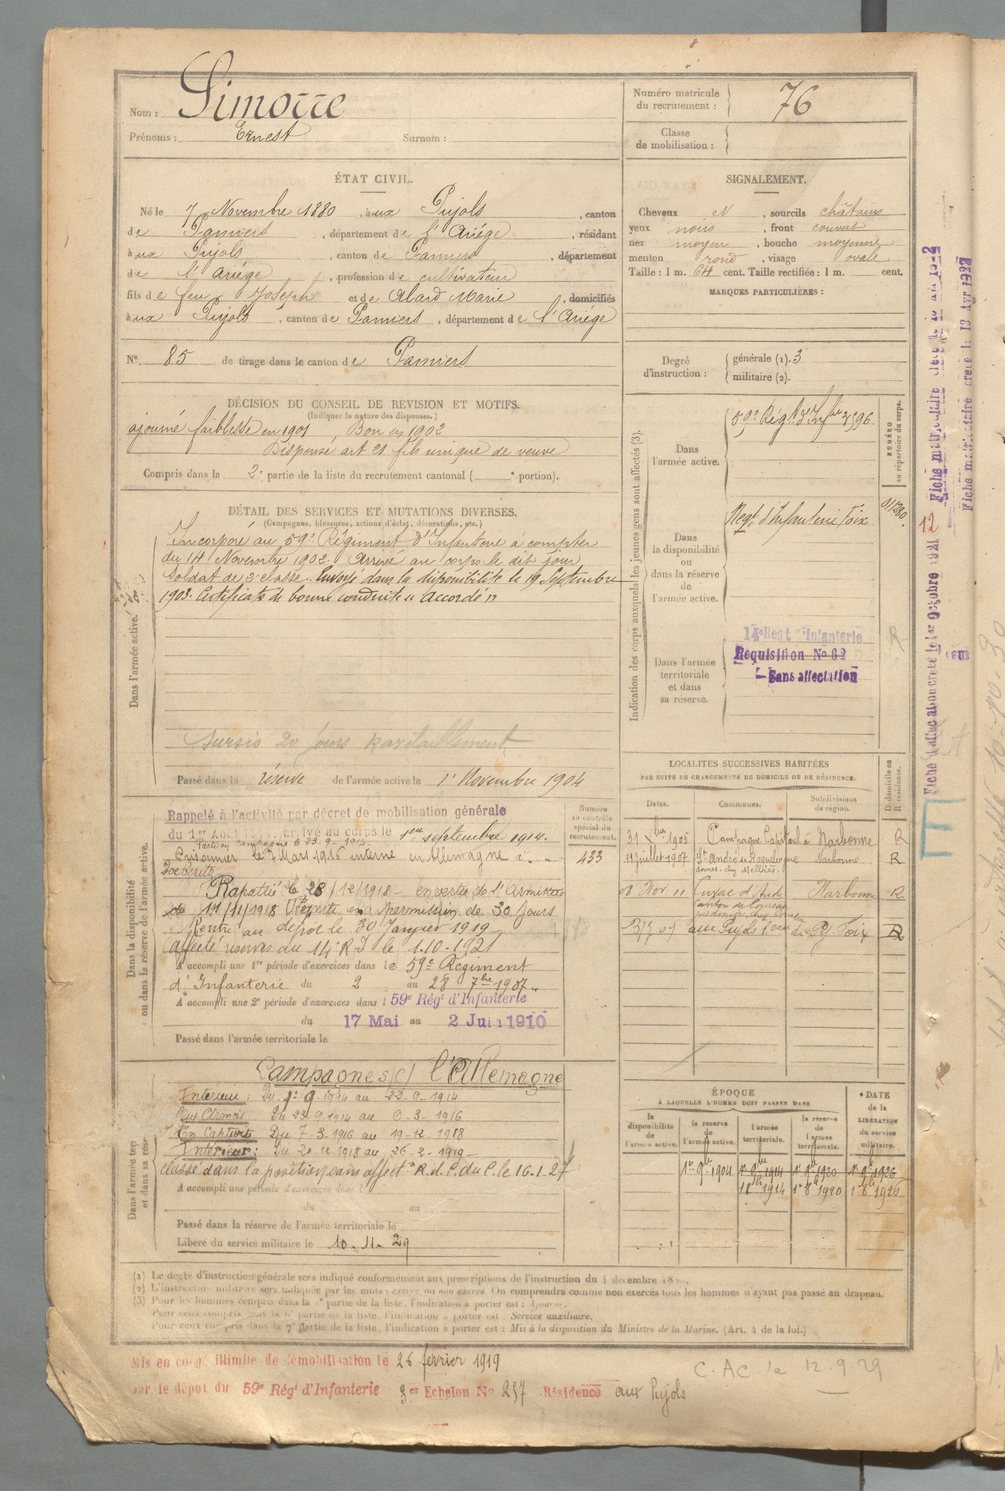 Nom : Simorre
Prénoms : Ernest Surnom :
Numéro matricule
du recrutement : 76
Classe
de mobilisation :
ÉTAT CIVIL.
Né le 7 Novembre 1880, aux Pujols, canton
de Pamiers, département de l'Ariège, résidant
aux Pujols, canton de Pamiers, département
de l'Ariège, profession de cultivateur
fils de feu Joseph et de Alard Marie, domiciliés
aux Pujols, canton de Pamiers, département de l'Ariège
N° 85 de tirage dans le canton de Pamiers
SIGNALEMENT.
Cheveux N, sourcils châtains
yeux noirs, front couvert
nez moyen, bouche moyenne
menton rond, visage ovale
Taille : 1 m. 64 cent. Taille rectifiée : 1 m. cent.
MARQUES PARTICULIÈRES :
Degré
d'instruction :
générale (1). 3
militaire (2).
DÉCISION DU CONSEIL DE REVISION ET MOTIFS.
(Indiquer la nature des dispenses.)
ajourné faiblesse en 1901 Bon en 1902
Dispensé art 21 fils unique de veuve
Compris dans la 2e partie de la liste du recrutement cantonal ( e portion).
DÉTAIL DES SERVICES ET MUTATIONS DIVERSES.
(Campagnes, blessures, actions d'éclat, décorations, etc.)
Dans l'armée active.
Incorporé au 59e Régiment d'Infanterie à compter
du 14 Novembre 1902. Arrivé au corps le dit jour
Soldat de 2e classe. Envoyé dans la disponibilité le 19 Septembre
1903. Certificat de bonne conduite "Accordé"
Sursis 20 jours Ravitaillement
Passé dans la réserve de l'armée active le 1er Novembre 1904
Indication des corps auxquels les jeunes gens sont affectés (3).
Dans
l'armée active.
59e Régt d'Infie 3596
NUMÉRO
au répertoire du corps.
Dans
la disponibilité
ou
dans la réserve
de
l'armée active.
Regt d'Infanterie Foix
Dans l'armée
territoriale
et dans
sa réserve.
14e Regt d'Infanterie
Requisition No 62
Sans affectation
LOCALITÉS SUCCESSIVES HABITÉES
PAR SUITE DE CHANGEMENTS DE DOMICILE OU DE RÉSIDENCE.
Dates. Communes. Subdivisions
de région.
D. domicile ou
R. résidence.
Narbonne R
11 juillet 1907 Narbonne R
08 Nov 11 Cuxac d'Aude Narbonne R
Foix R
Dans la disponibilité
ou dans la réserve de l'armée active.
Numéro
au contrôle
spécial du
recrutement.
433
Rappelé à l'activité par décret de mobilisation générale
du 1er Août 1914, arrivé au corps le 1er septembre 1914.
Parti en campagne le 23.9.1914.
Prisonnier le 7 Mars 1916 interné en Allemagne à
Rapatrié le 28/12/1918 en vertu de l'Armistice
du 11/11/1918 en permission de 30 Jours
Rentré au dépôt le 30 Janvier 1919
affecté réserves du 14e R.I. le 1.10.1921
A accompli une 1re période d'exercices dans le 59e Régiment
d'Infanterie du 2 au 28 7bre 1907
A accompli une 2e période d'exercices dans l 59e Régt d'Infanterie
du 17 Mai au 2 Juin 1910
Passé dans l'armée territoriale le
Campagnes (C) l'Allemagne
Intérieur : Du 1.9.1914 au 22.9.1914
Aux Armées : Du 23.9.1914 au 6.3.1916
En Captivité Du 7.3.1916 au 19.12.1918
Intérieur : Du 20.12.1918 au 26.2.1919
Classé dans la position sans affect.on R.d.C. du P. le 16.1.27
A accompli une période d'exercices dans l
du au
Passé dans la réserve de l'armée territoriale le
Libéré du service militaire le 10.11.29
ÉPOQUE
À LAQUELLE L'HOMME DOIT PASSER DANS
la
disponibilité
de
l'armée active.
la réserve
de
l'armée active.
l'armée
territoriale.
la réserve
de
l'armée
territoriale.
DATE
de la
LIBÉRATION
du service
militaire.
1er 9bre 1904 1er 9bre 1914 1er 9bre 1920 1er 9bre 1926
(1) Le degré d'instruction générale sera indiqué conformément aux prescriptions de l'instruction du 4 décembre
(2) L'instruction militaire sera indiquée par les mots : exercé ou non exercé. On comprendra comme non exercés tous les hommes n'ayant pas passé au drapeau.
(3) Pour les hommes compris dans la partie de la liste, l'indication à porter est : Ajourné.
Pour ceux compris dans la 6e partie de la liste, l'indication à porter est : Service auxiliaire.
Pour ceux compris dans la 7e partie de la liste, l'indication à porter est : Mis à la disposition du Ministre de la Marine. (Art. 4 de la loi.)
Mis en congé illimité de démobilisation le 26 février 1919
par le dépôt du 59e Régt d'Infanterie 3er Echelon No 257 Résidence aux Pujols
C. AC le 12.9.29